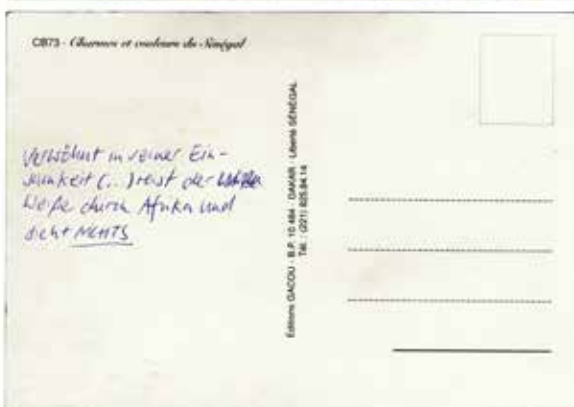 CB73 - Charmes et couleurs du Sénégal
Versöhnt in seiner Ein-
samkeit (...) reist der
Weiße durch Afrika und
sieht NICHTS
Editions GACOU - B.P. 10 484 - DAKAR - Liberté SÉNÉGAL
Tél. : (221) 825.84.14